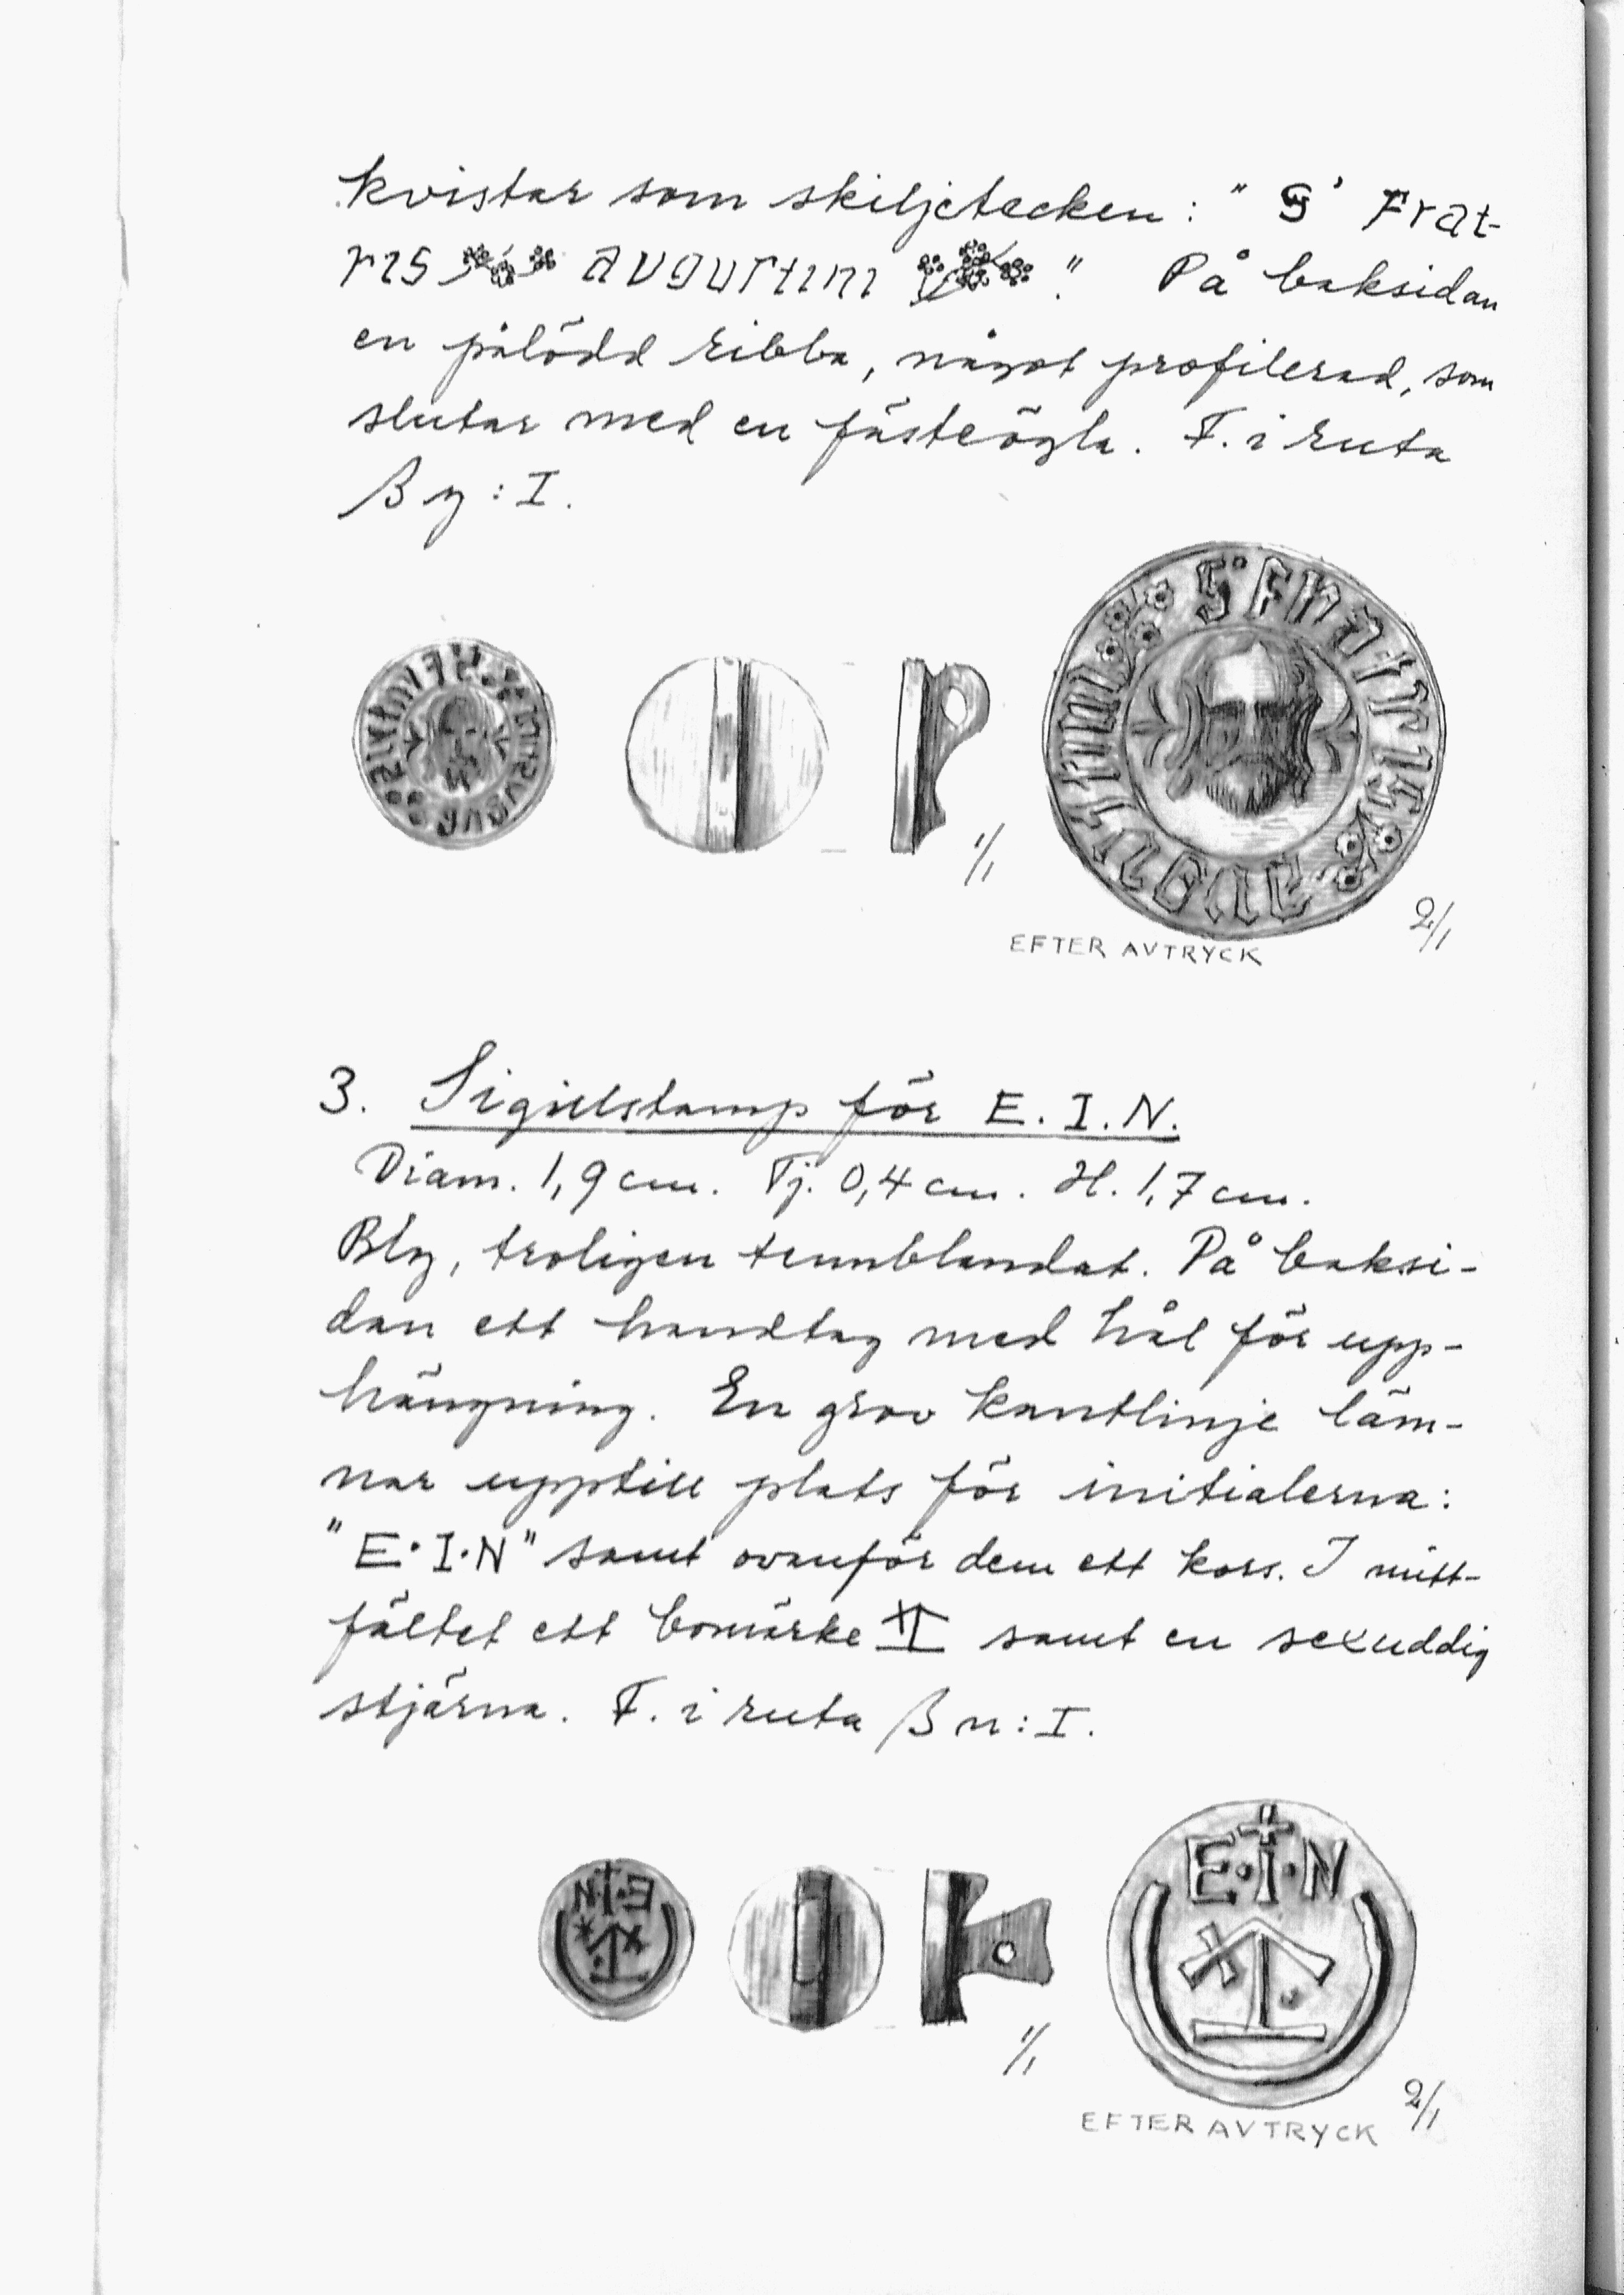 kvistar som skiljetecken: "S' Frat-
ris avgurtini". På baksidan
en pålödd ribba, något profilerad, som
slutar med en fästeögla. F. i ruta
ß y : I.
1/1
2/1
EFTER AVTRYCK
3. Sigillstamp för E. I. N.
Diam. 1,9 cm. Tj. 0,4 cm. H. 1,7 cm.
Bly, troligen tennblandat. På baksi-
dan ett handtag med hål för upp-
hängning. En grov kantlinje läm-
nar upptill plats för initialerna:
"E·I·N" samt ovanför dem ett kors. I mitt-
fältet ett bomärke samt en sexuddig
stjärna. F. i ruta ß n : I.
E·I·N
1/1
2/1
EFTER AVTRYCK